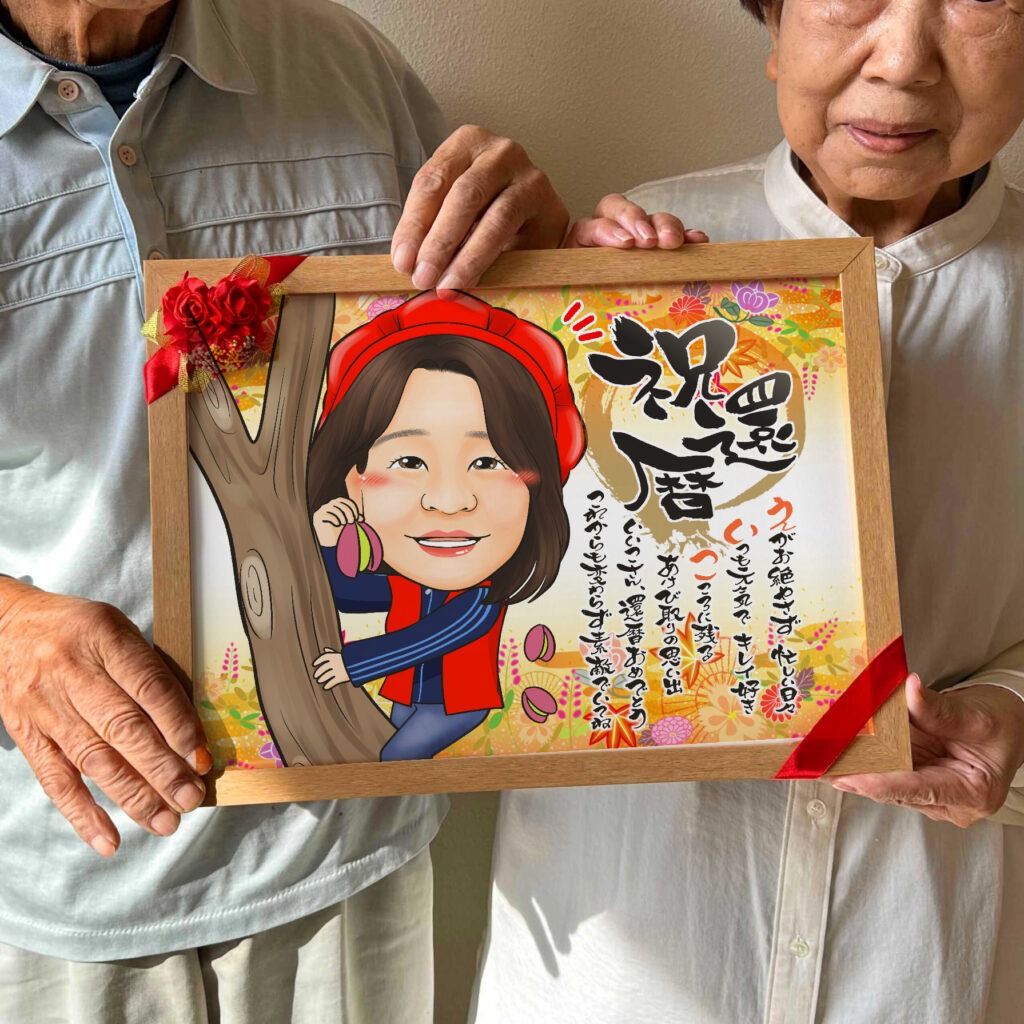 祝還暦
えがお絶やさず 忙しい日々
いつも元気で キレイ好き
こころに残る
あけび取りの思い出
えいこさん、還暦おめでとう
これからも変わらず素敵でいてね